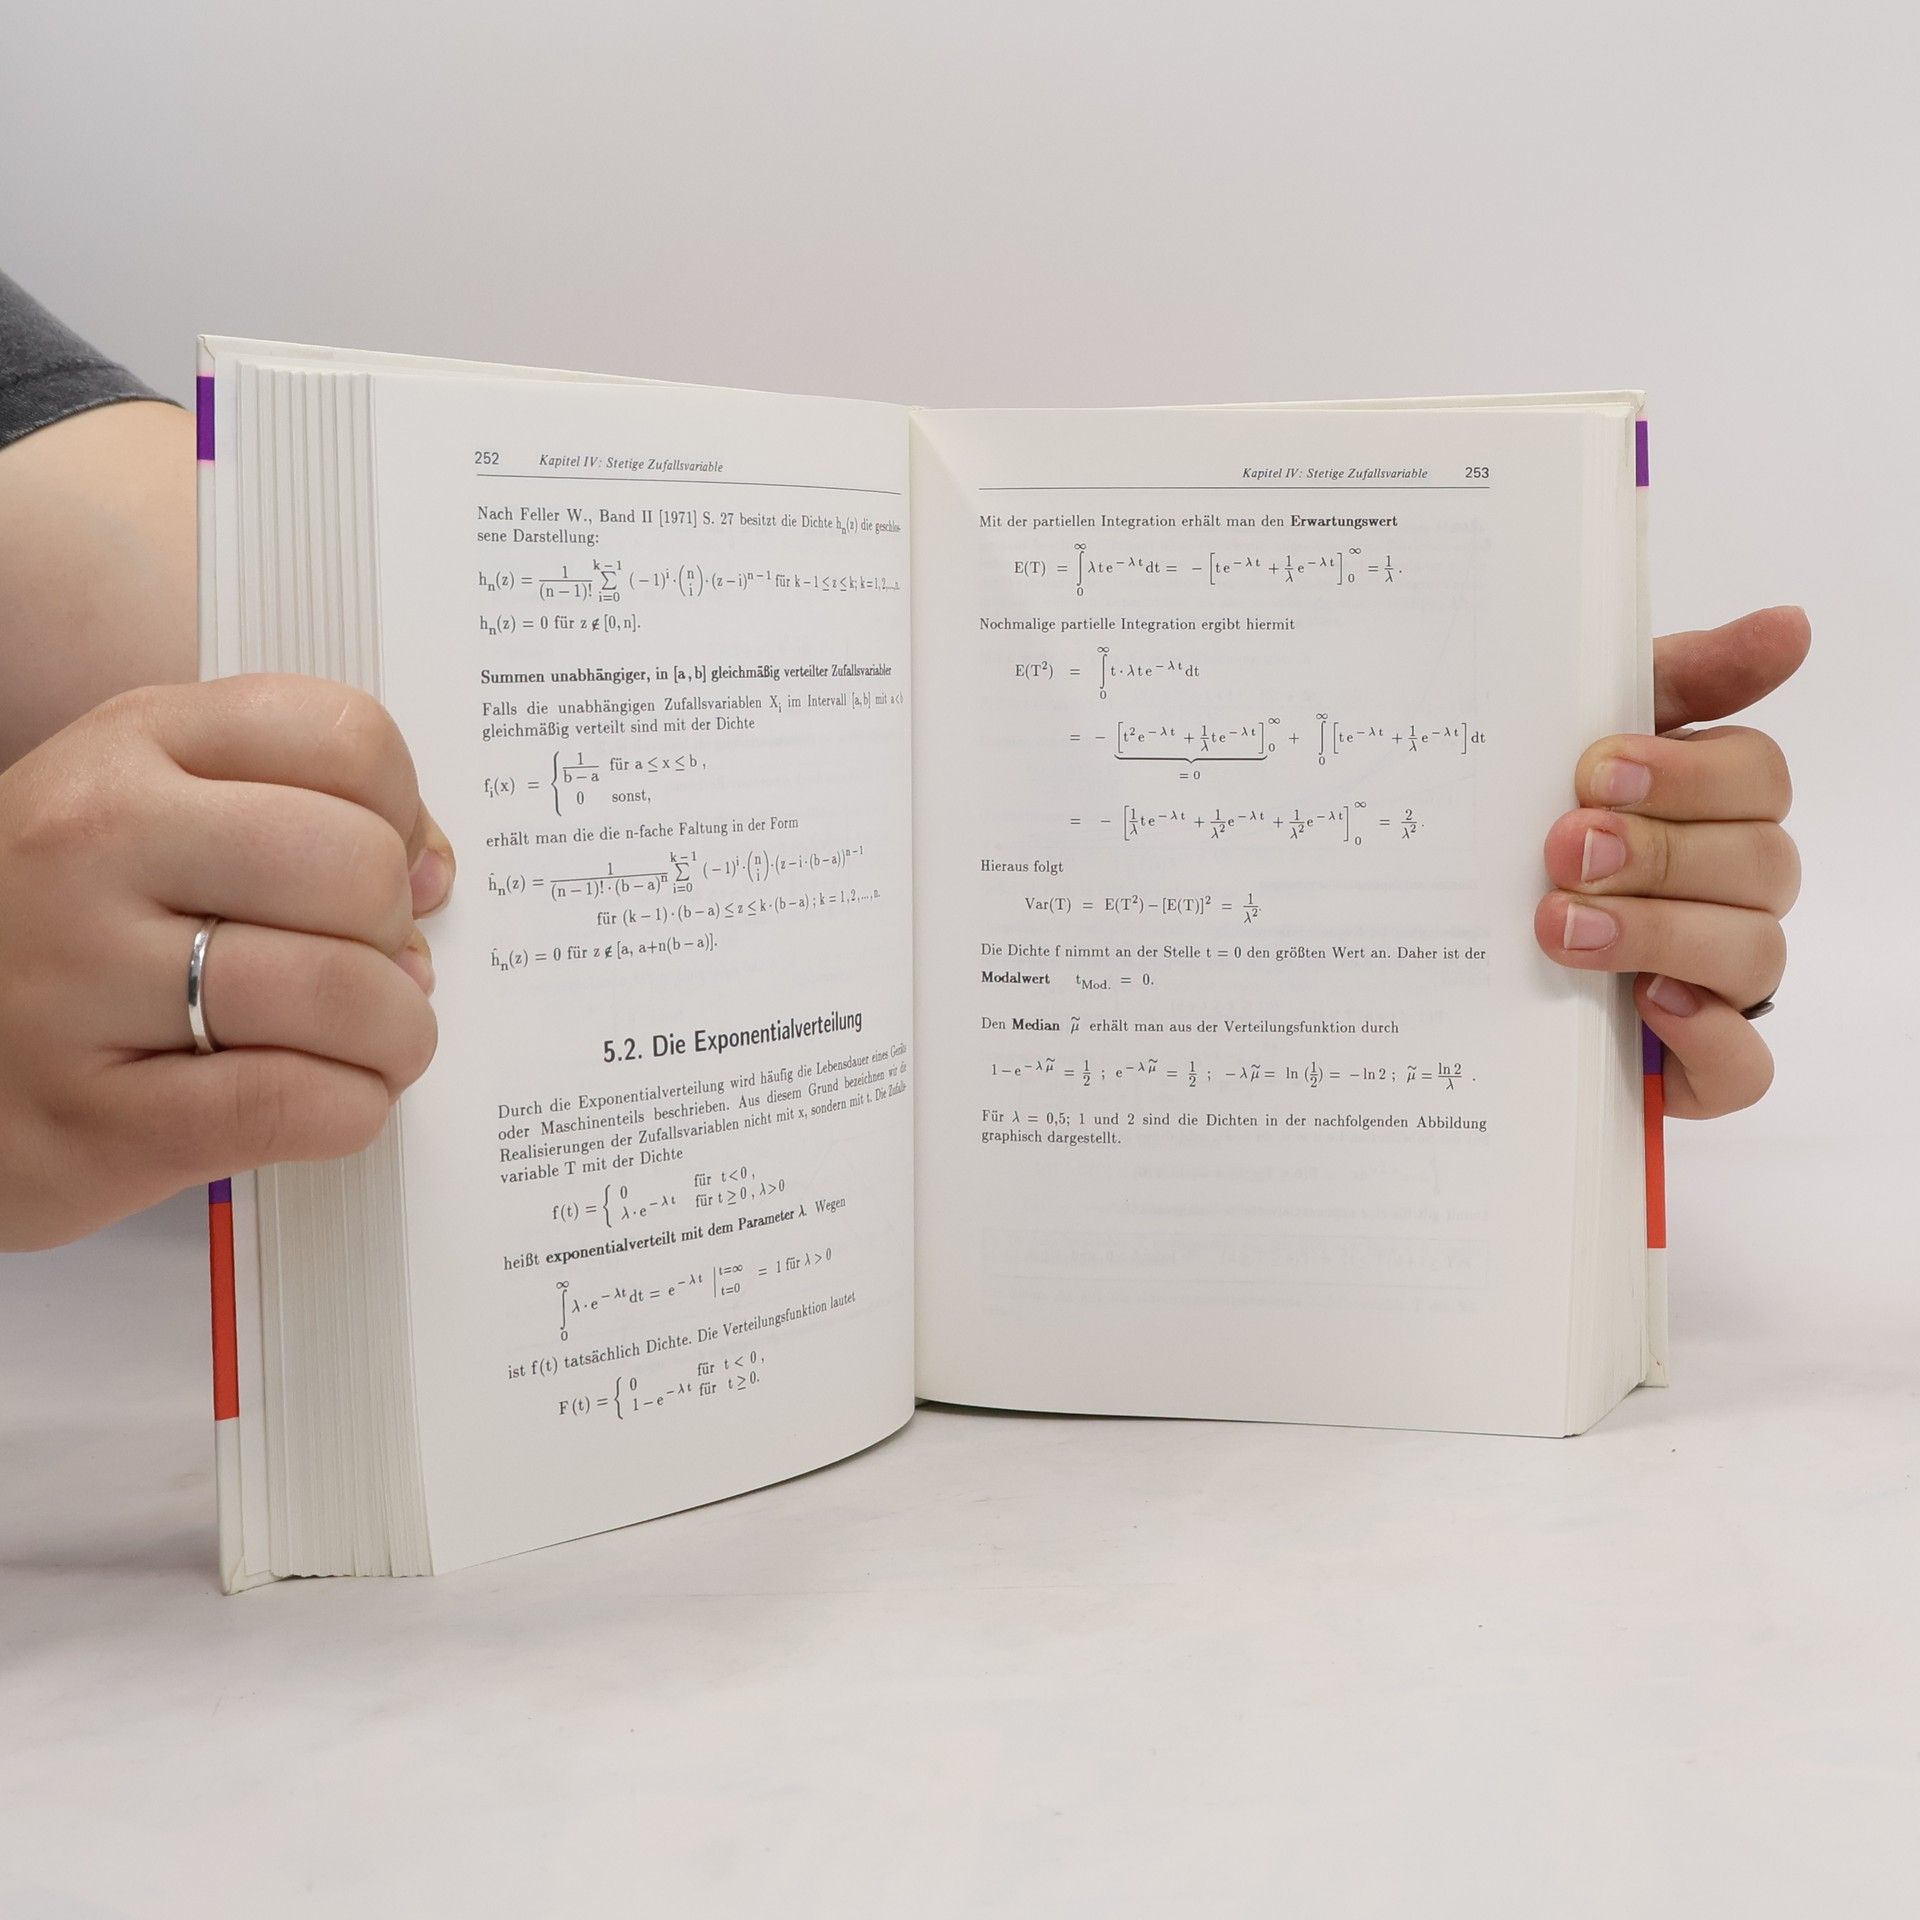 252 Kapitel IV: Stetige Zufallsvariable
Nach Feller W., Band II [1971] S. 27 besitzt die Dichte hₙ(z) die geschlos-
sene Darstellung:
hₙ(z) = 1/(n−1)! ∑_{i=0}^{k−1} (−1)ⁱ·(n über i)·(z−i)ⁿ⁻¹ für k−1≤z≤k; k=1,2,...,n.
hₙ(z) = 0 für z ∉ [0,n].
Summen unabhängiger, in [a,b] gleichmäßig verteilter Zufallsvariabler
Falls die unabhängigen Zufallsvariablen Xᵢ im Intervall [a,b] mit a<b
gleichmäßig verteilt sind mit der Dichte
fᵢ(x) = { 1/(b−a) für a≤x≤b,
0 sonst,
erhält man die die n-fache Faltung in der Form
ĥₙ(z) = 1/((n−1)!·(b−a)ⁿ) ∑_{i=0}^{k−1} (−1)ⁱ·(n über i)·(z−i·(b−a))ⁿ⁻¹
für (k−1)·(b−a)≤z≤k·(b−a); k=1,2,...,n.
ĥₙ(z) = 0 für z ∉ [a, a+n(b−a)].
5.2. Die Exponentialverteilung
Durch die Exponentialverteilung wird häufig die Lebensdauer eines Geräts
oder Maschinenteils beschrieben. Aus diesem Grund bezeichnen wir die
Realisierungen der Zufallsvariablen nicht mit x, sondern mit t. Die Zufalls-
variable T mit der Dichte
f(t) = { 0 für t<0,
λ·e^{−λt} für t≥0, λ>0
heißt exponentialverteilt mit dem Parameter λ. Wegen
∫₀^∞ λ·e^{−λt} dt = e^{−λt} |_{t=0}^{t=∞} = 1 für λ>0
ist f(t) tatsächlich Dichte. Die Verteilungsfunktion lautet
F(t) = { 0 für t<0,
1−e^{−λt} für t≥0.
Kapitel IV: Stetige Zufallsvariable 253
Mit der partiellen Integration erhält man den Erwartungswert
E(T) = ∫₀^∞ λte^{−λt}dt = −[te^{−λt} + 1/λ e^{−λt}]₀^∞ = 1/λ.
Nochmalige partielle Integration ergibt hiermit
E(T²) = ∫₀^∞ t·λte^{−λt}dt
= −[t²e^{−λt} + 1/λ te^{−λt}]₀^∞ + ∫₀^∞ [te^{−λt} + 1/λ e^{−λt}]dt
= 0
= −[1/λ te^{−λt} + 1/λ² e^{−λt} + 1/λ² e^{−λt}]₀^∞ = 2/λ².
Hieraus folgt
Var(T) = E(T²)−[E(T)]² = 1/λ².
Die Dichte f nimmt an der Stelle t = 0 den größten Wert an. Daher ist der
Modalwert t_{Mod.} = 0.
Den Median μ̃ erhält man aus der Verteilungsfunktion durch
1−e^{−λμ̃} = 1/2 ; e^{−λμ̃} = 1/2 ; −λμ̃ = ln(1/2) = −ln2 ; μ̃ = ln2/λ .
Für λ = 0,5; 1 und 2 sind die Dichten in der nachfolgenden Abbildung
graphisch dargestellt.